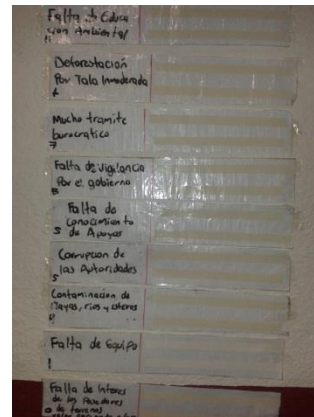 Falta de Educa
cion Ambiental
Deforestación
Por Tala Inmoderada
6
Mucho tramite
burocratico
7
Falta de Vigilancia
Por el gobierno
Falta de
Conocimiento
5 de Apoyos
Corrupcion de
las Autoridades
5
Contaminacion de
Playas, rios y esteros
Falta de Equipo
1
Falla de Interes
de los Pobladores